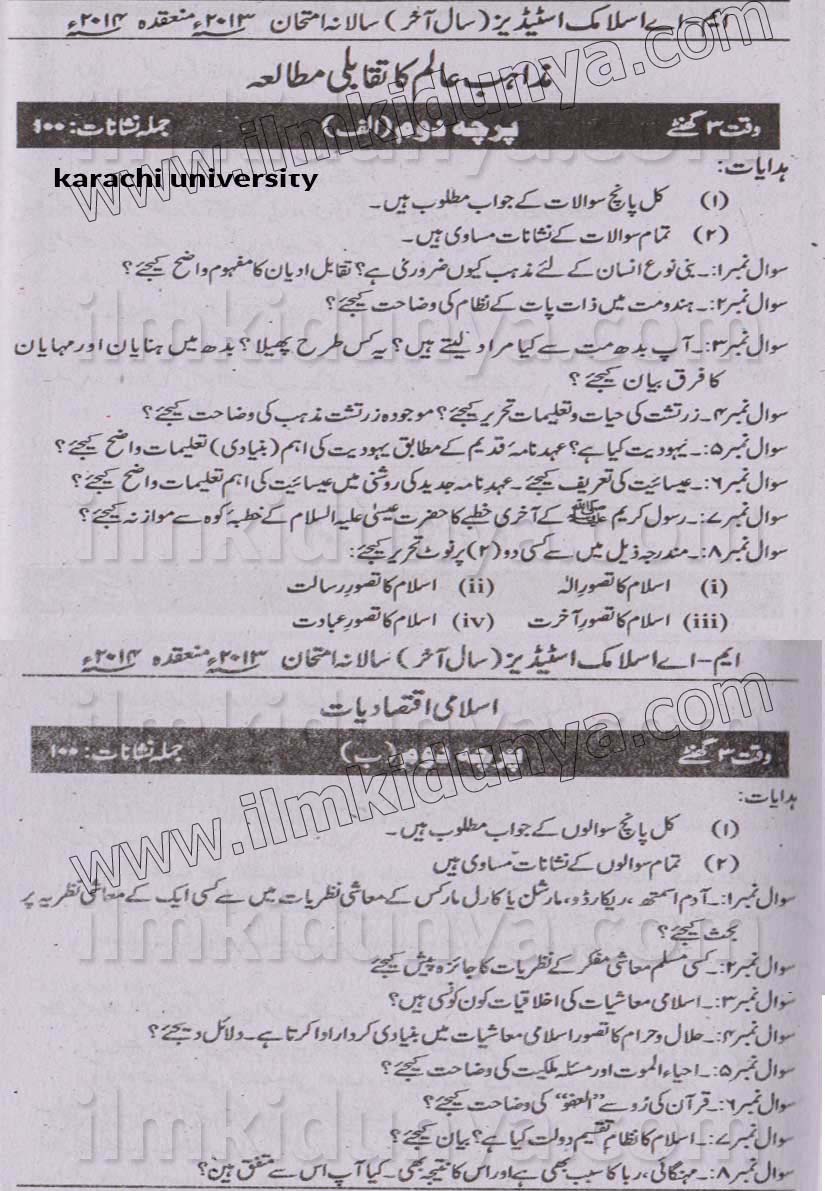 ایم-اے اسلامک اسٹیڈیز (سال آخر) سالانہ امتحان ۲۰۱۳ء منعقدہ ۲۰۱۴ء
مذاہب عالم کا تقابلی مطالعہ
وقت ۳ گھنٹے پرچہ دوم (الف) جملہ نشانات: ۱۰۰
ہدایات:
karachi university
(۱) کل پانچ سوالات کے جواب مطلوب ہیں۔
(۲) تمام سوالات کے نشانات مساوی ہیں۔
سوال نمبر۱:۔ بنی نوع انسان کے لئے مذہب کیوں ضروری ہے؟ تقابل ادیان کا مفہوم واضح کیجئے؟
سوال نمبر۲:۔ ہندومت میں ذات پات کے نظام کی وضاحت کیجئے؟
سوال نمبر۳:۔ آپ بدھ مت سے کیا مراد لیتے ہیں؟ یہ کس طرح پھیلا؟ بدھ میں ہنایان اور مہایان
کا فرق بیان کیجئے؟
سوال نمبر۴:۔ زرتشت کی حیات و تعلیمات تحریر کیجئے؟ موجودہ زرتشت مذہب کی وضاحت کیجئے؟
سوال نمبر۵:۔ یہودیت کیا ہے؟ عہد نامۂ قدیم کے مطابق یہودیت کی اہم (بنیادی) تعلیمات واضح کیجئے؟
سوال نمبر۶:۔ عیسائیت کی تعریف کیجئے۔ عہد نامہ جدید کی روشنی میں عیسائیت کی اہم تعلیمات واضح کیجئے؟
سوال نمبر۷:۔ رسول کریم ﷺ کے آخری خطبے کا حضرت عیسیٰ علیہ السلام کے خطبۂ کوہ سے موازنہ کیجئے؟
سوال نمبر۸:۔ مندرجہ ذیل میں سے کسی دو (۲) پر نوٹ تحریر کیجئے:
(i) اسلام کا تصور الٰہ (ii) اسلام کا تصور رسالت
(iii) اسلام کا تصور آخرت (iv) اسلام کا تصور عبادت
ایم-اے اسلامک اسٹیڈیز (سال آخر) سالانہ امتحان ۲۰۱۳ء منعقدہ ۲۰۱۴ء
اسلامی اقتصادیات
وقت ۳ گھنٹے پرچہ دوم (ب) جملہ نشانات: ۱۰۰
ہدایات:
(۱) کل پانچ سوالوں کے جواب مطلوب ہیں۔
(۲) تمام سوالوں کے نشانات مساوی ہیں
سوال نمبر۱:۔ آدم اسمتھ، ریکارڈو، مارشل یا کارل مارکس کے معاشی نظریات میں سے کسی ایک کے معاشی نظریہ پر
بحث کیجئے؟
سوال نمبر۲:۔ کسی مسلم معاشی مفکر کے نظریات کا جائزہ پیش کیجئے
سوال نمبر۳:۔ اسلامی معاشیات کی اخلاقیات کون کونسی ہیں؟
سوال نمبر۴:۔ حلال و حرام کا تصور اسلامی معاشیات میں بنیادی کردار ادا کرتا ہے۔ دلائل دیجئے؟
سوال نمبر۵:۔ احیاء الموت اور مسئلہ ملکیت کی وضاحت کیجئے؟
سوال نمبر۶:۔ قرآن کی رُو سے "العفو" کی وضاحت کیجئے؟
سوال نمبر۷:۔ اسلام کا نظامِ تقسیم دولت کیا ہے؟ بیان کیجئے؟
سوال نمبر۸:۔ مہنگائی، ربا کا سبب بھی ہے اور اس کا نتیجہ بھی۔ کیا آپ اس سے متفق ہیں؟
www.ilmkidunya.com
ilmkidunya.com
ilmkidunya.com
ilmkidunya.com
www.ilmkidunya.com
ilmkidunya.com
ilmkidunya.com
ilmkidunya.com